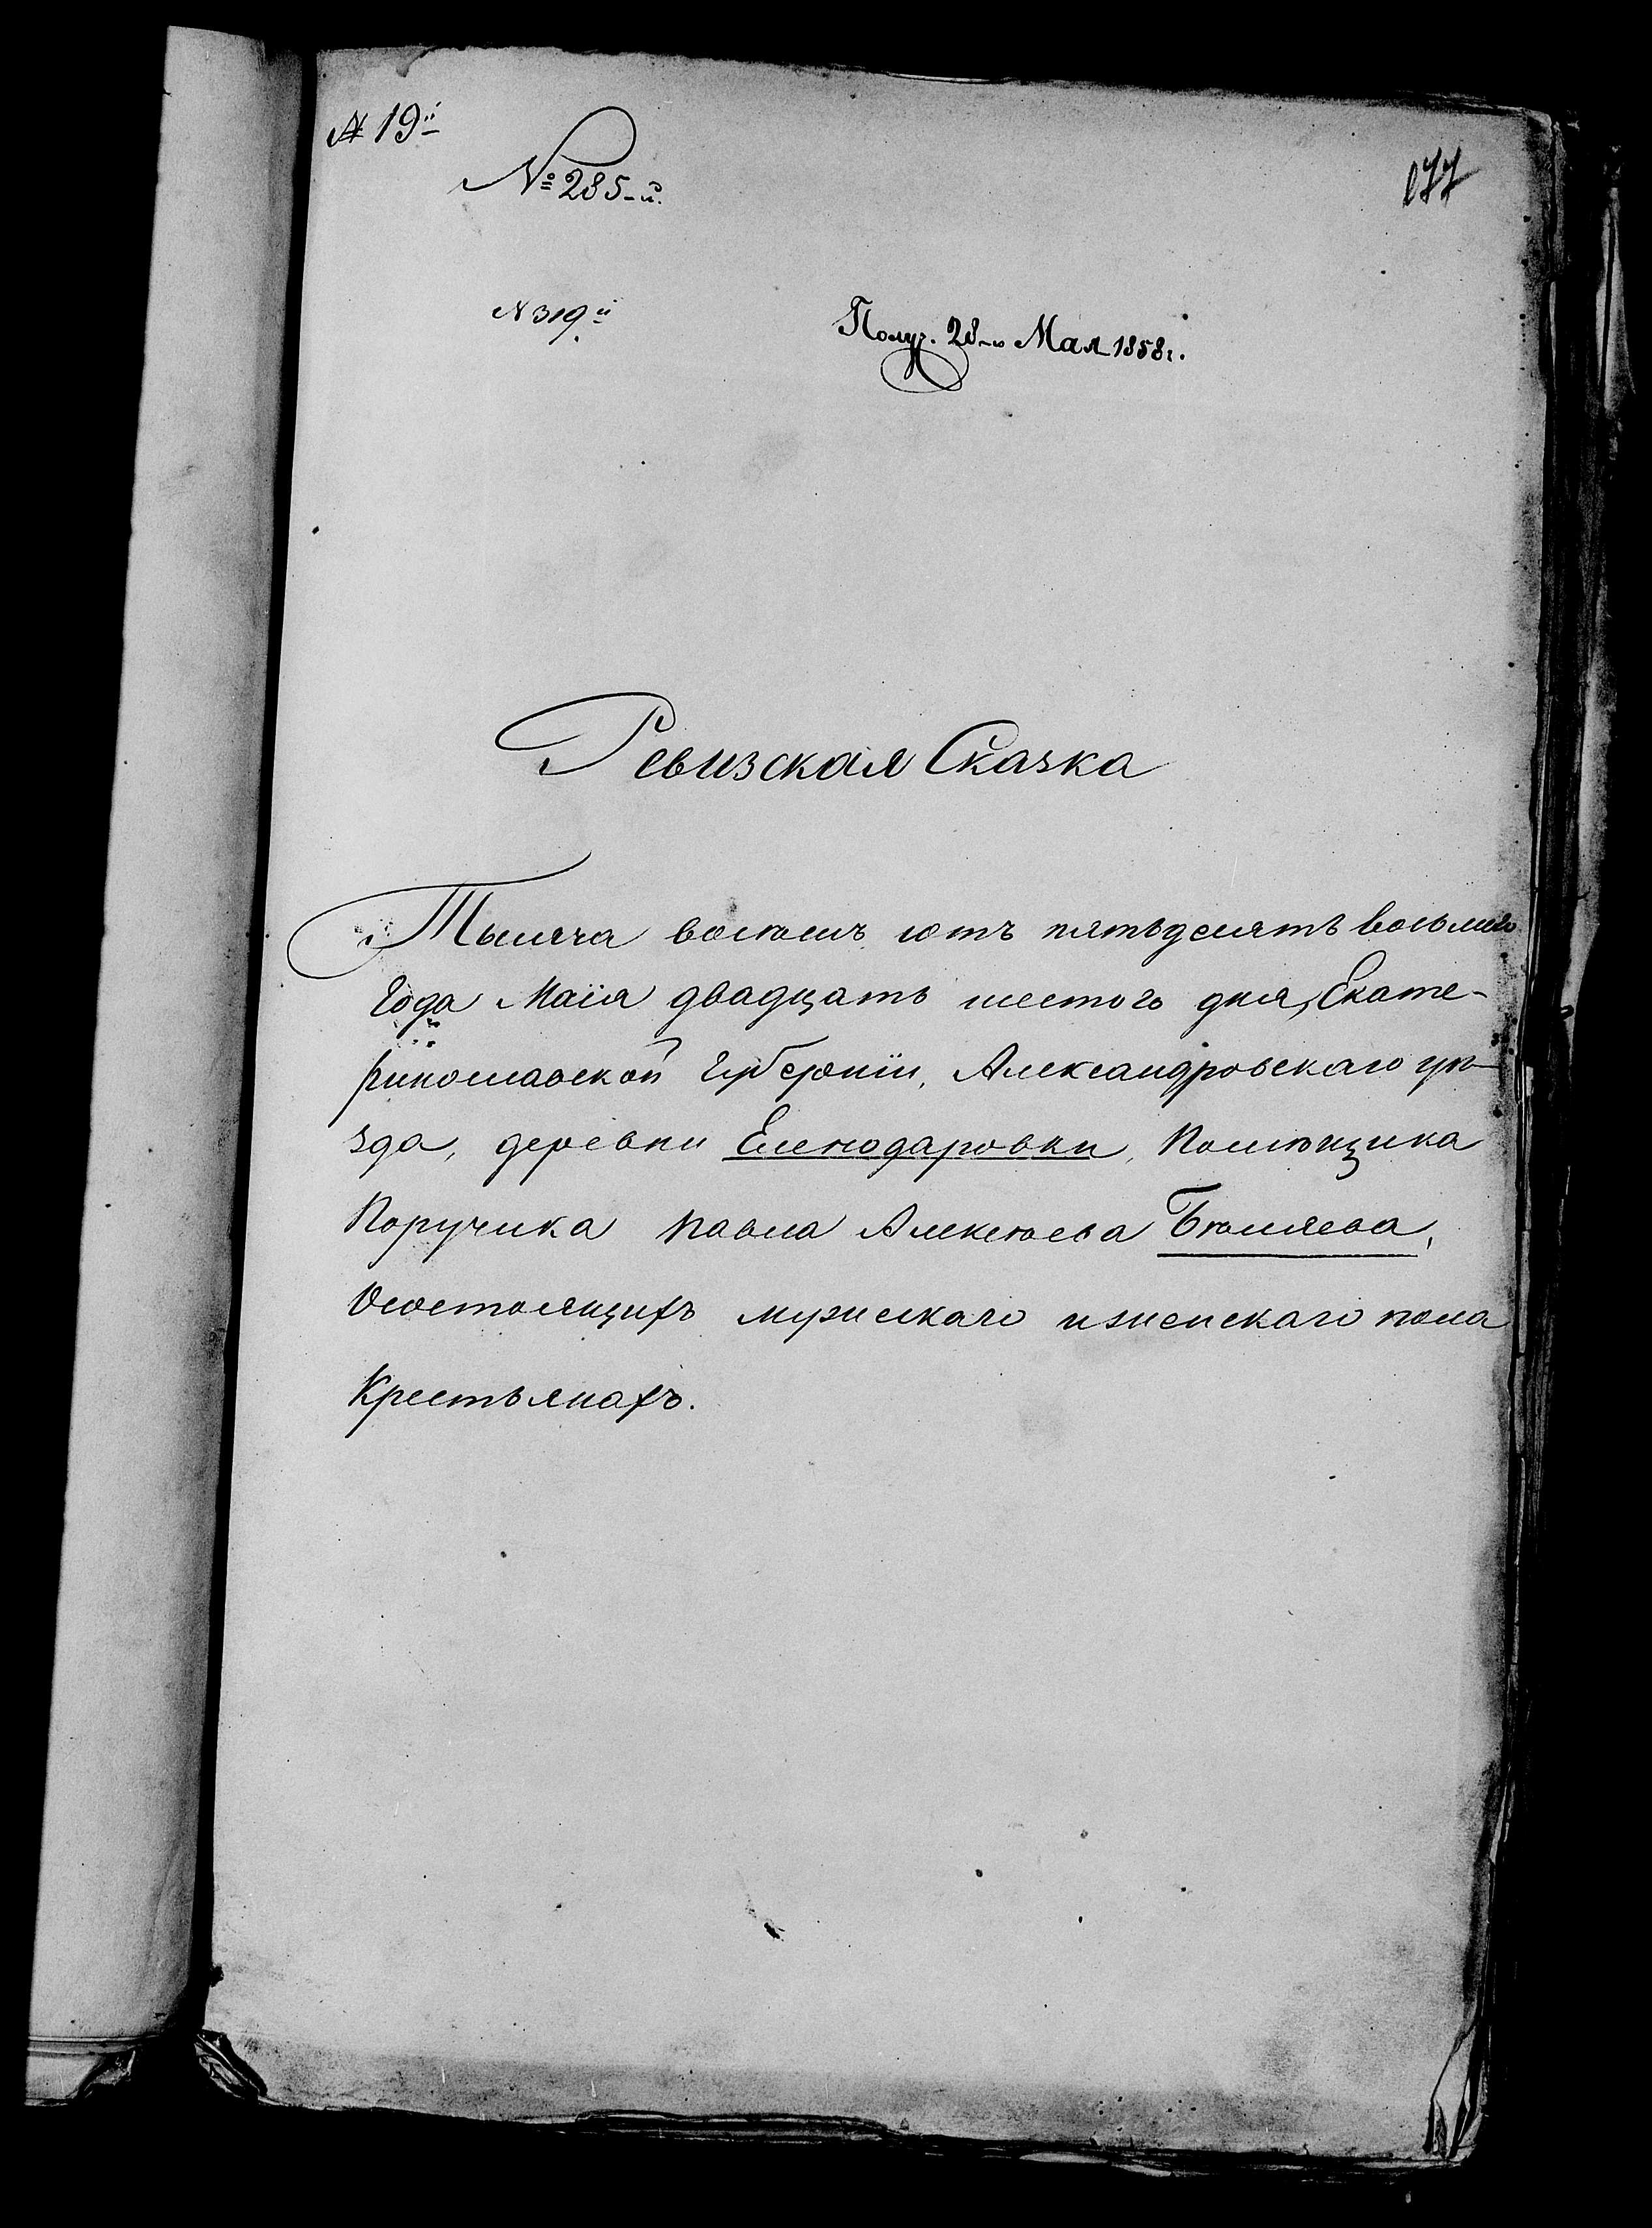 № 19й
№ 285-й.
177
№ 319й
Получ. 28-го Мая 1858 г.
Ревизская Сказка
Тысяча восемъ сотъ пятьдесятъ восьмаго
Года Маія двадцать шестого дня, Екате-
ринославской Губерніи, Александровскаго уѣ-
зда, деревни Еленодаровки, Помѣщика
Поручика Павла Алексѣева Бѣляева,
О состоящихъ мужескаго и женскаго пола
Крестьянахъ.